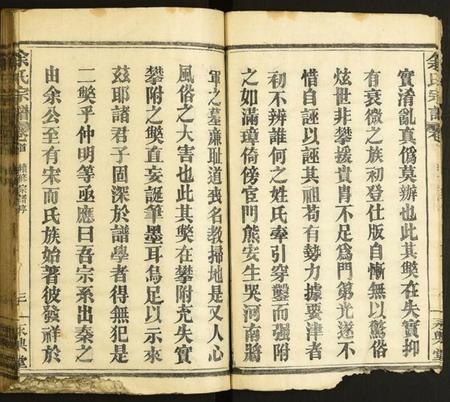 實淆亂真偽莫辦也此其獘在失實抑
有衰微之族初登仕版自慚無以驚俗
炫世非攀援貴胄不足爲門第光遂不
惜自誣以誣其祖苟有勢力據要津者
初不辨誰何之姓氏牽引穿鑿而強附
之如滿璋倚傍宦門熊安生哭河南將
軍之墓廉耻道喪名教掃地是又人心
風俗之大害也此其獘在攀附夫失實
攀附之獘直妄誕筆墨耳烏足以示來
茲耶諸君子固深於譜學者得無犯是
二獘乎仲明等亟應曰吾宗系出秦之
由余公至有宋而氏族始著彼發祥於
余氏宗譜
卷首
三
永興堂
余氏宗譜
永興堂